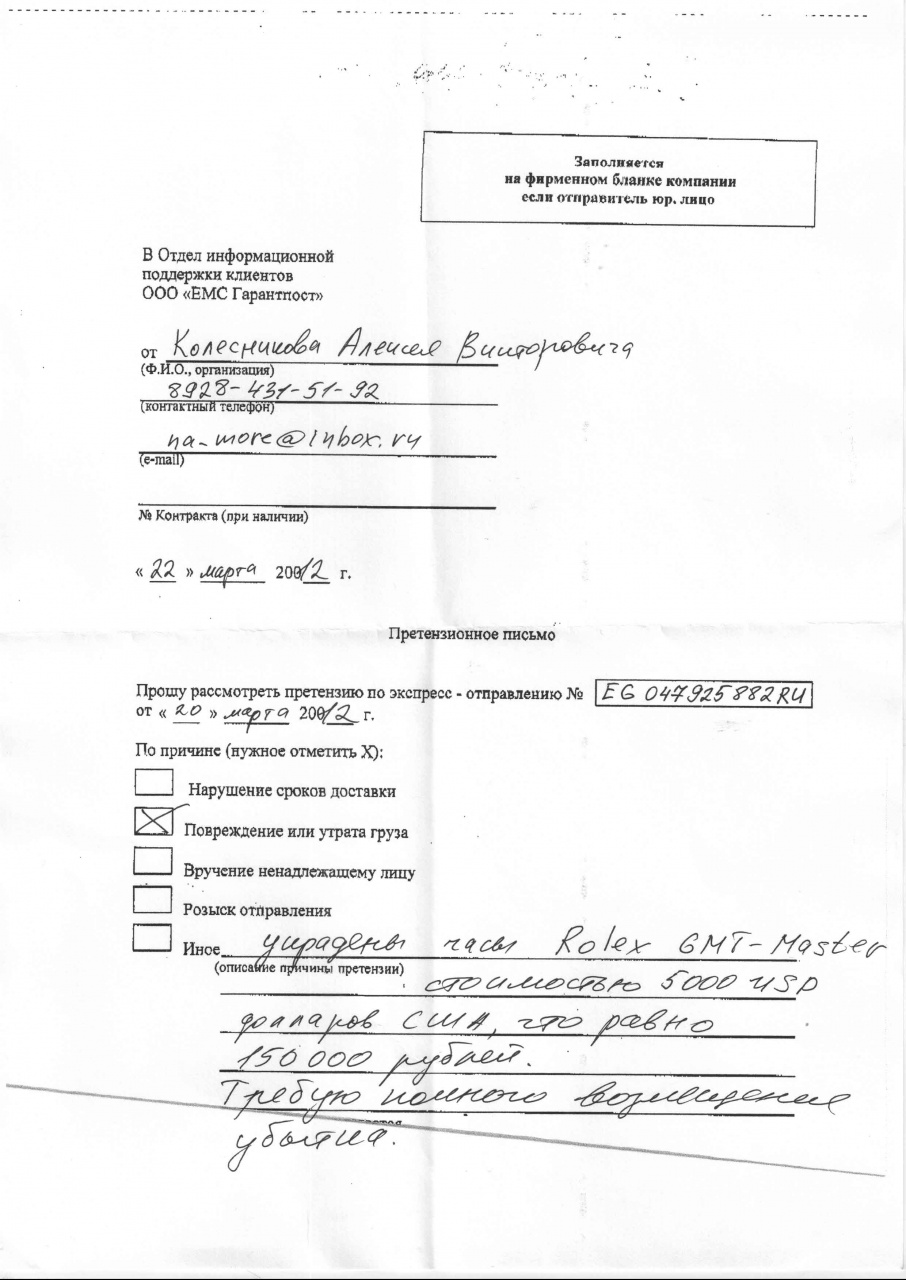 Заполняется
на фирменном бланке компании
если отправитель юр. лицо
В Отдел информационной
поддержки клиентов
ООО «ЕМС Гарантпост»
от Колесникова Алексея Викторовича
(Ф.И.О., организация)
8928-431-51-92
(контактный телефон)
na-more@inbox.ru
(e-mail)
№ Контракта (при наличии)
« 22 » марта 20012 г.
Претензионное письмо
Прошу рассмотреть претензию по экспресс - отправлению № EG 047925882RU
от « 20 » марта 20012 г.
По причине (нужное отметить X):
Нарушение сроков доставки
X Повреждение или утрата груза
Вручение ненадлежащему лицу
Розыск отправления
Иное украдены часы Rolex GMT-Master
(описание причины претензии)
стоимостью 5000 USD
долларов США, что равно
150 000 рублей.
Требую полного возмещения
убытка.